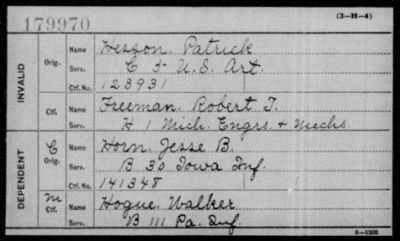 179970
(3-H-4)
INVALID
Orig.
Name Hesson. Patrick
Serv. C 5 U.S. Art.
Ctf. No. 123931
Ctf.
Name Freeman. Robert T.
Serv. H 1 Mich. Engrs. & Mechs
DEPENDENT
C
Orig.
Name Horn. Jesse B.
Serv. B 30 Iowa Inf.
Ctf. No. 141348
M
Ctf.
Name Hogue. Walker
Serv. B 111 Pa. Inf.